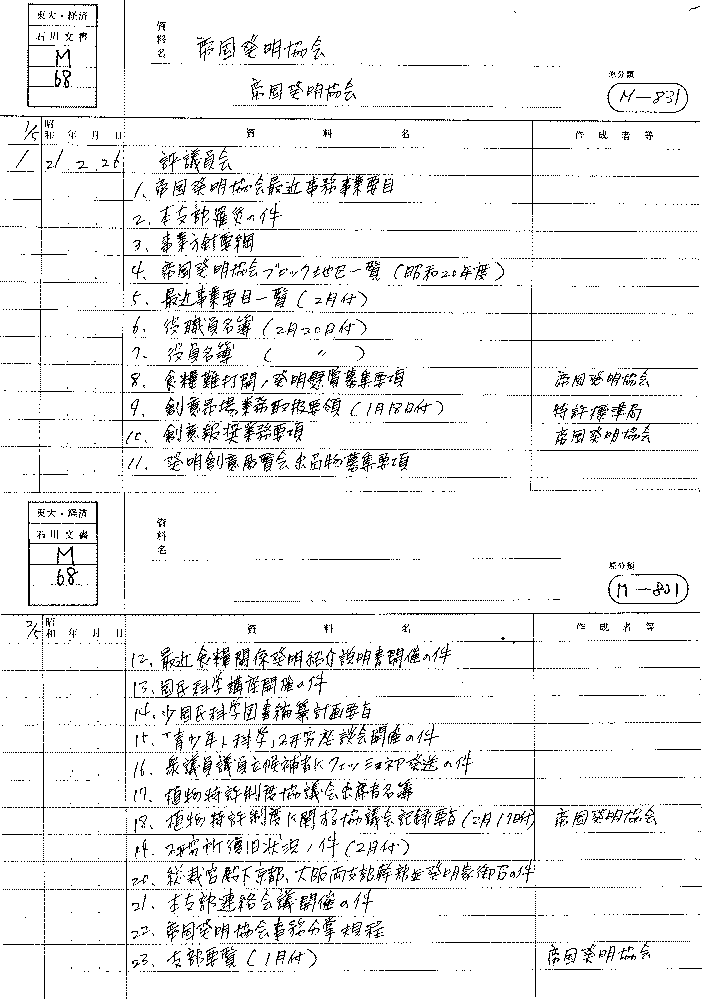 東大・経済
石川文書
M
68
資料名
帝国発明協会
帝国発明協会
原分類
M-831
1/5 昭和 年 月 日 資料名 作成者等
1 21 2 26 評議員会
1. 帝国発明協会最近事務事業要目
2. 本支部罹災の件
3. 事業方針要綱
4. 帝国発明協会ブロック地区一覧(昭和20年度)
5. 最近事業要目一覧(2月付)
6. 役職員名簿(2月20日付)
7. 役員名簿( 〃 )
8. 食糧難打開ノ発明懸賞募集要項 帝国発明協会
9. 創意市場業務取扱要領(1月18日付) 特許標準局
10. 創意報奨業務要項 帝国発明協会
11. 発明創意展覧会出品物募集要項
東大・経済
石川文書
M
68
資料名
原分類
M-831
2/5 昭和 年 月 日 資料名 作成者等
12. 最近食糧関係発明紹介説明書開催の件
13. 国民科学講座開催の件
14. 少国民科学図書編纂計画要旨
15. 「青少年ト科学」研究懇談会開催の件
16. 衆議員議員立候補者に 発送の件
17. 植物特許制度協議会出席者名簿
18. 植物特許制度に関する協議会記録要旨(2月19日付) 帝国発明協会
19. 研究所復旧状況ノ件(2月付)
20. 総裁宮殿下京都、大阪両支部 並発明家御召の件
21. 本支部連絡会議開催の件
22. 帝国発明協会事務分掌規程
23. 支部要覧(1月付) 帝国発明協会